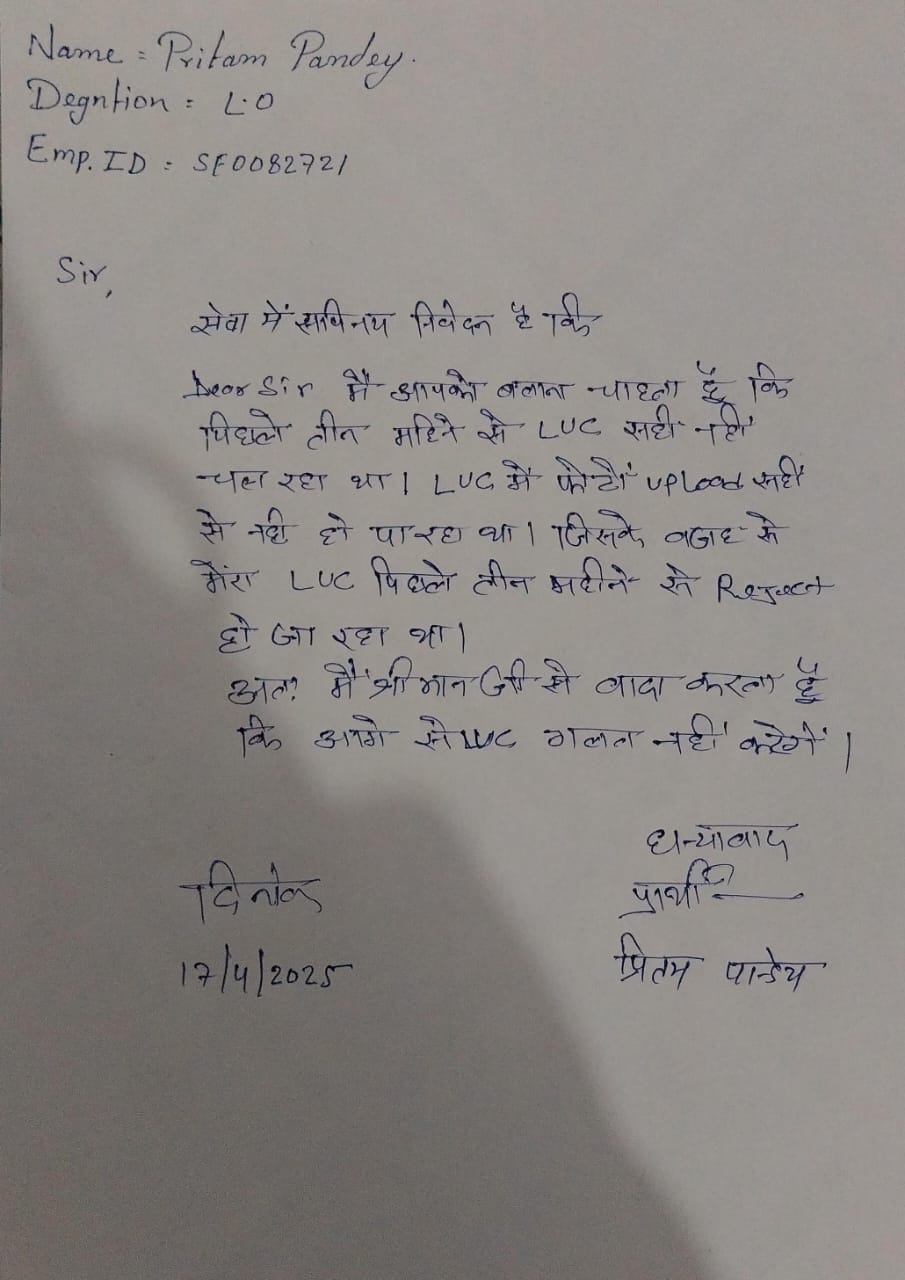 Name = Pritam Pandey.
Degntion = L.O
Emp. ID : SF0082721
Sir,
सेवा में सविनय निवेदन है कि
Dear Sir मैं आपको बताना चाहता हूँ कि
पिछले तीन महिने से LUC सही नहीं
चल रहा था। LUC में फोटों upload सही
से नही हो पा रहा था। जिसके वजह से
मेंरा LUC पिछले तीन महीने से Reject
हो जा रहा था।
अतः मैं श्रीमान जी से वादा करता हूँ
कि आगे से LUC गलत नहीं करेगें।
धन्यावाद
दिनांक प्रार्थी
17/4/2025 प्रितम पान्डेय